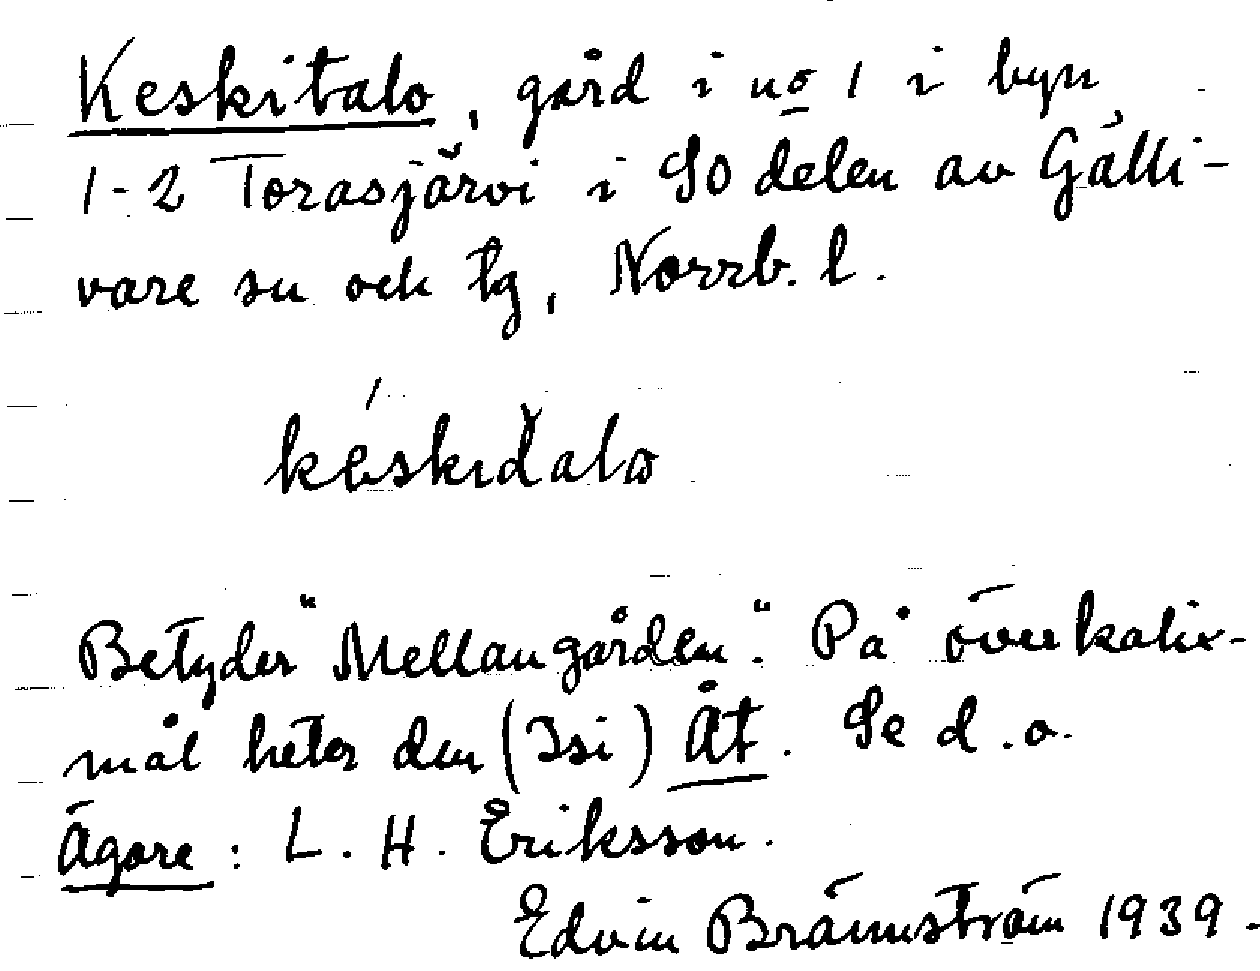 Keskitalo, gård i no 1 i byn
1-2 Torasjärvi i SO delen av Gälli-
vare sn och tg, Norrb. l.
kèskiďalo
Betyder "Mellangården". På överkalix-
mål heter den (Isi) Åt. Se d.o.
Ägare: L. H. Eriksson.
Edvin Brännström 1939.